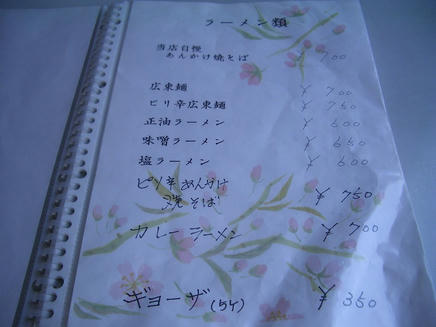 ラーメン類
当店自慢
あんかけ焼そば ¥700
広東麺 ¥700
ピリ辛広東麺 ¥750
正油ラーメン ¥600
味噌ラーメン ¥650
塩ラーメン ¥600
ピリ辛あんかけ
焼そば ¥750
カレーラーメン ¥700
ギョーザ(5ケ) ¥350